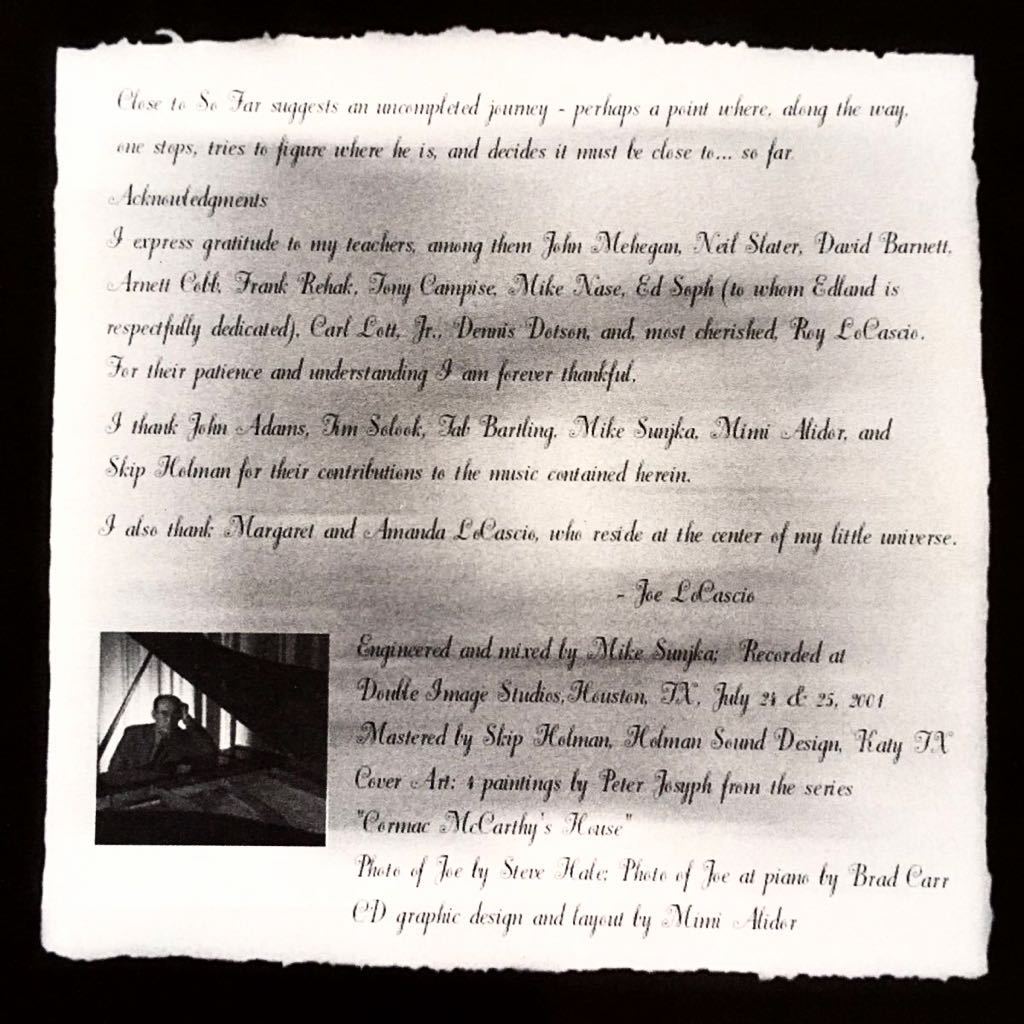 Close to So Far suggests an uncompleted journey - perhaps a point where, along the way,
one stops, tries to figure where he is, and decides it must be close to... so far
Acknowledgments
I express gratitude to my teachers, among them John Mehegan, Neil Slater, David Barnett,
Arnett Cobb, Frank Rehak, Tony Campise, Mike Nase, Ed Soph (to whom Edland is
respectfully dedicated), Carl Lott, Jr., Dennis Dotson, and, most cherished, Roy LoCascio.
For their patience and understanding I am forever thankful.
I thank John Adams, Tim Solook, Tab Bartling, Mike Sunjka, Mimi Alidor, and
Skip Holman for their contributions to the music contained herein.
I also thank Margaret and Amanda LoCascio, who reside at the center of my little universe.
- Joe LoCascio
Engineered and mixed by Mike Sunjka; Recorded at
Double Image Studios, Houston, TX, July 24 & 25, 2001
Mastered by Skip Holman, Holman Sound Design, Katy TX
Cover Art: 4 paintings by Peter Josyph from the series
"Cormac McCarthy's House"
Photo of Joe by Steve Hale; Photo of Joe at piano by Brad Carr
CD graphic design and layout by Mimi Alidor